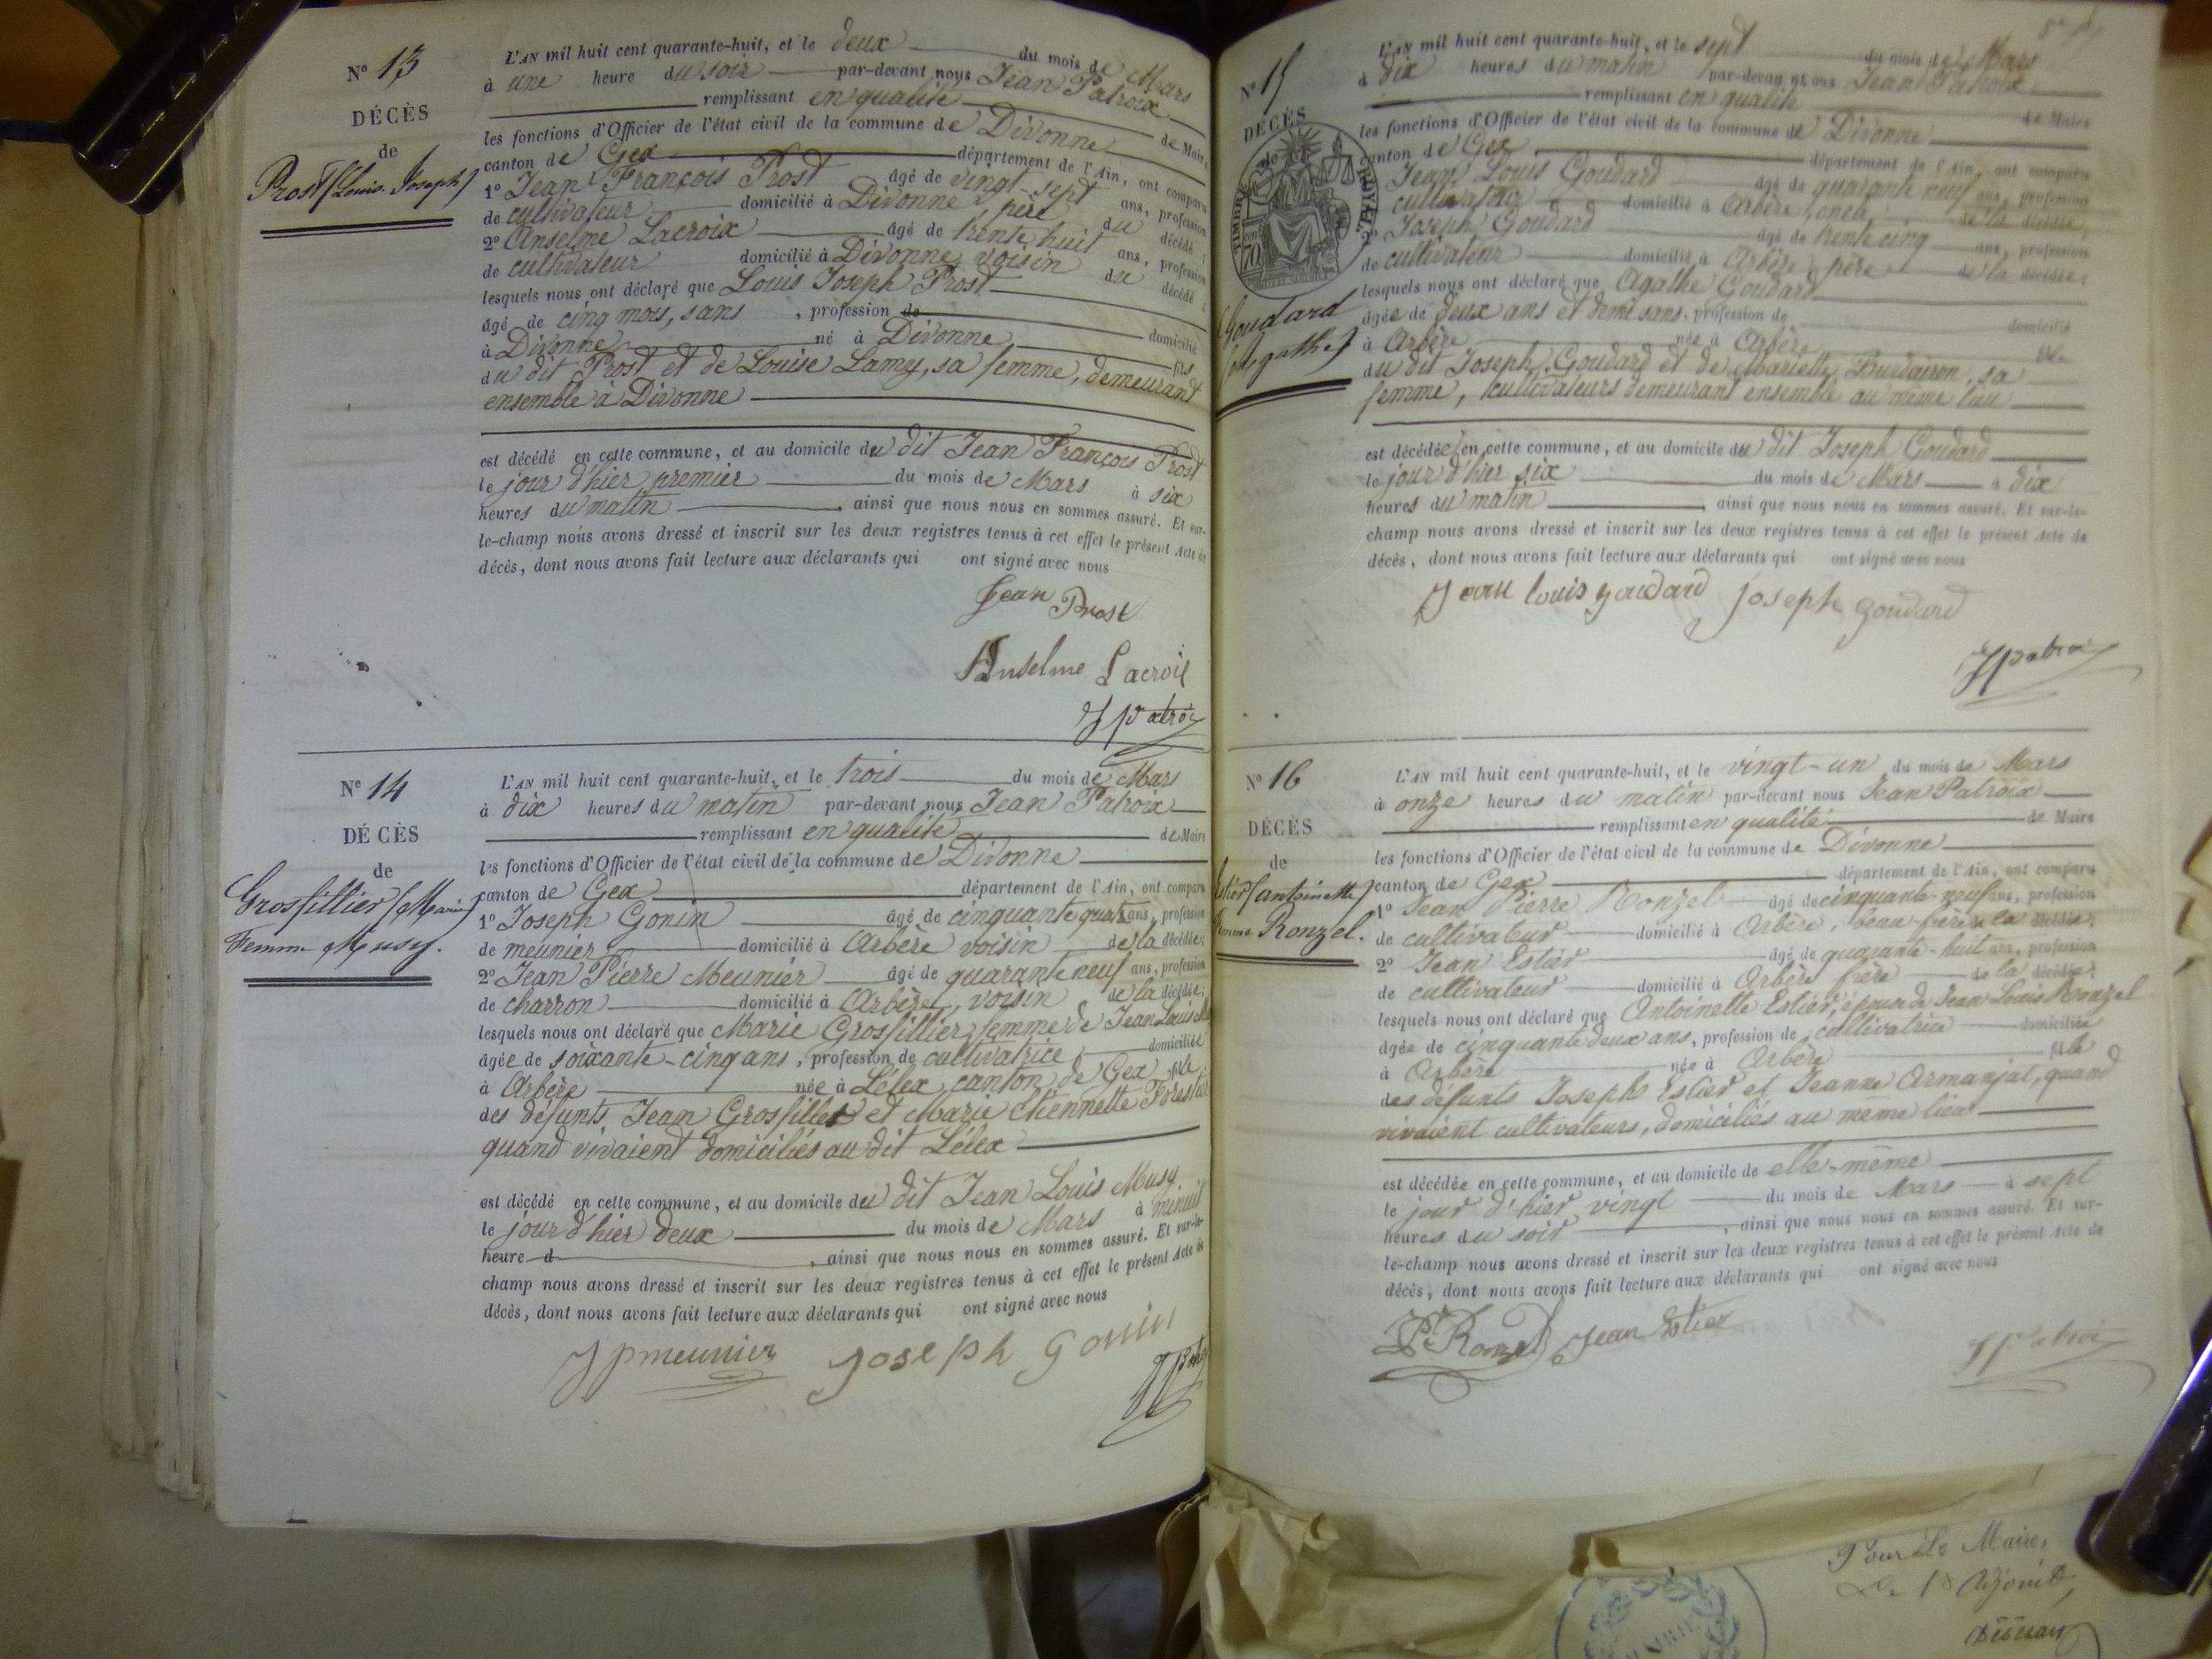 Nº 13
DÉCÈS
de
Prost (Louis Joseph)
L'AN mil huit cent quarante-huit, et le deux du mois de Mars
à une heure du soir par-devant nous Jean Patroix
remplissant en qualité de Maire
les fonctions d'Officier de l'état civil de la commune de Divonne
canton de Gex département de l'Ain, ont comparu
1º Jean François Prost âgé de vingt-sept ans, profession
de cultivateur domicilié à Divonne, père du décédé
2º Anselme Lacroix âgé de trente huit ans, profession
de cultivateur domicilié à Divonne, voisin du décédé
lesquels nous ont déclaré que Louis Joseph Prost
âgé de cinq mois, sans, profession de domicilié
à Divonne né à Divonne fils
du dit Prost et de Louise Lamy, sa femme, demeurant
ensemble à Divonne
est décédé en cette commune, et au domicile du dit Jean François Prost
le jour d'hier premier du mois de Mars à six
heures du matin, ainsi que nous nous en sommes assuré. Et sur-
le-champ nous avons dressé et inscrit sur les deux registres tenus à cet effet le présent Acte de
décès, dont nous avons fait lecture aux déclarants qui ont signé avec nous
Jean Prost
Anselme Lacroix
J Patroix
Nº 14
DÉCÈS
de
Grosfillier (Marie)
Femme Musy.
L'AN mil huit cent quarante-huit, et le trois du mois de Mars
à dix heures du matin par-devant nous Jean Patroix
remplissant en qualité de Maire
les fonctions d'Officier de l'état civil de la commune de Divonne
canton de Gex département de l'Ain, ont comparu
1º Joseph Gonin âgé de cinquante quatre ans, profession
de meunier domicilié à Arbère voisin de la décédée;
2º Jean Pierre Meunier âgé de quarante neuf ans, profession
de charron domicilié à Arbère, voisin de la décédée;
lesquels nous ont déclaré que Marie Grosfillier, femme de Jean Louis
âgée de soixante-cinq ans, profession de cultivatrice domiciliée
à Arbère née à Lélex, canton de Gex fille
des défunts Jean Grosfillier et Marie Etiennette Forestier
quand vivaient domiciliés au dit Lélex
est décédé en cette commune, et au domicile du dit Jean Louis Musy
le jour d'hier deux du mois de Mars à minuit
heure d, ainsi que nous nous en sommes assuré. Et sur-le-
champ nous avons dressé et inscrit sur les deux registres tenus à cet effet le présent Acte de
décès, dont nous avons fait lecture aux déclarants qui ont signé avec nous
J p meunier Joseph Gonin
Nº 15
DÉCÈS
de
TIMBRE ROYAL
70
Goudard
(Agathe)
L'AN mil huit cent quarante-huit, et le sept du mois de Mars
à dix heures du matin par-devant nous Jean Patroix
remplissant en qualité de Maire
les fonctions d'Officier de l'état civil de la commune de Divonne
canton de Gex département de l'Ain, ont comparu
Jean Louis Goudard âgé de quarante neuf ans, profession
cultivateur domicilié à Arbère, oncle de la décédée;
2º Joseph Goudard âgé de trente cinq ans, profession
de cultivateur domicilié à Arbère, père de la décédée;
lesquels nous ont déclaré que Agathe Goudard
âgée de deux ans et demi sans, profession de domicilié
à Arbère née à Arbère fille
du dit Joseph Goudard et de Mariette Burdairon, sa
femme, cultivateurs demeurant ensemble au même lieu
est décédée en cette commune, et au domicile du dit Joseph Goudard
le jour d'hier six du mois de Mars à dix
heures du matin, ainsi que nous nous en sommes assuré. Et sur-le-
champ nous avons dressé et inscrit sur les deux registres tenus à cet effet le présent Acte de
décès, dont nous avons fait lecture aux déclarants qui ont signé avec nous
Jean louis goudard joseph goudard
J Patroix
Nº 16
DÉCÈS
de
Estier (antoinette)
Femme Ronzel.
L'AN mil huit cent quarante-huit, et le vingt-un du mois de Mars
à onze heures du matin par-devant nous Jean Patroix
remplissant en qualité de Maire
les fonctions d'Officier de l'état civil de la commune de Divonne
canton de Gex département de l'Ain, ont comparu
1º Jean Pierre Ronzel âgé de cinquante-neuf ans, profession
de cultivateur domicilié à Arbère, beau-frère de la décédée;
2º Jean Estier âgé de quarante-huit ans, profession
de cultivateur domicilié à Arbère frère de la décédée;
lesquels nous ont déclaré que Antoinette Estier, épouse de Jean Louis Ronzel
âgée de cinquante deux ans, profession de cultivatrice domiciliée
à Arbère née à Arbère fille
des défunts Joseph Estier et Jeanne Armanjat, quand
vivaient cultivateurs, domiciliés au même lieu
est décédée en cette commune, et au domicile de elle-même
le jour d'hier vingt du mois de Mars à sept
heures du soir, ainsi que nous nous en sommes assuré. Et sur-
le-champ nous avons dressé et inscrit sur les deux registres tenus à cet effet le présent Acte de
décès, dont nous avons fait lecture aux déclarants qui ont signé avec nous
Pre Ronzel Jean Estier
J Patroix
Pour Le Maire,
L'Adjoint,
MAIRIE